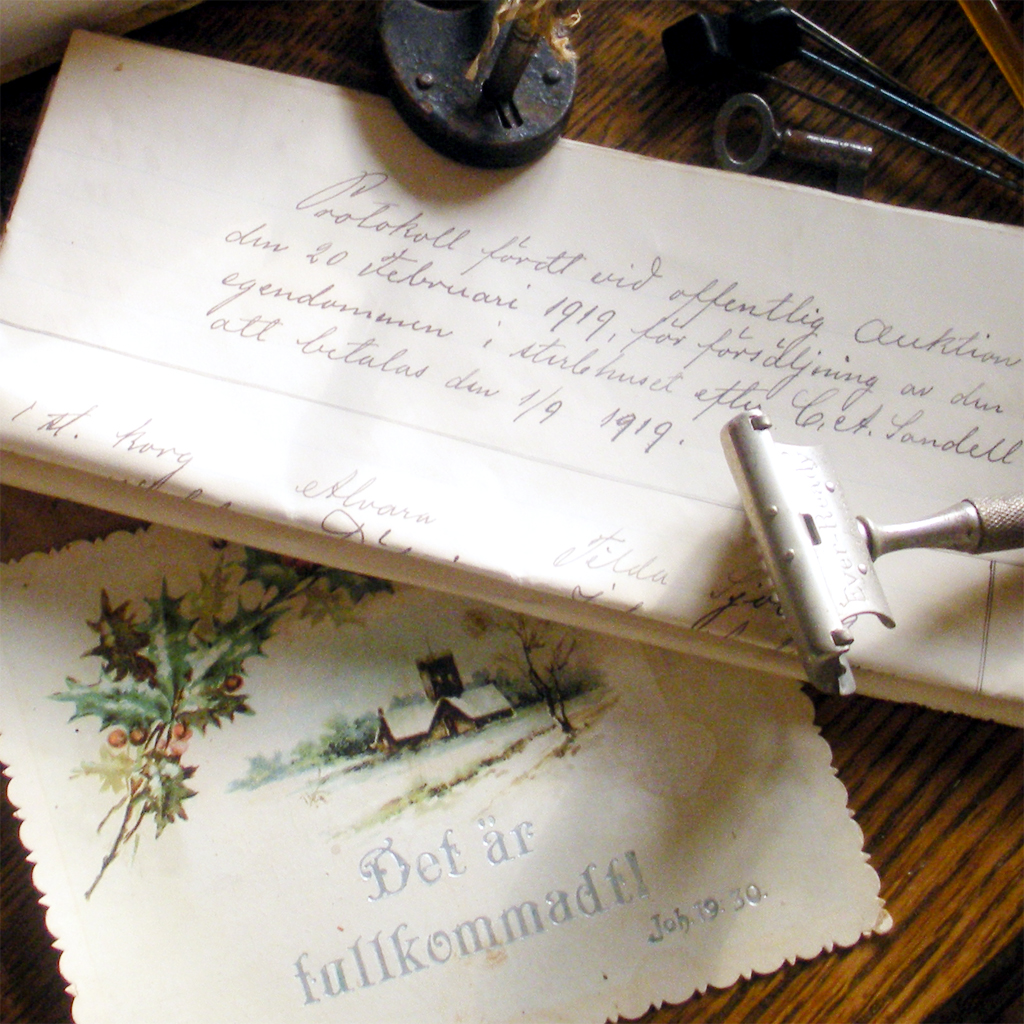 Protokoll fördt vid offentlig Auktion
den 20 Februari 1919, för försäljning av den
egendommen i sterbhuset efter C. A. Sandell
att betalas den 1/9 1919.
1 st. Korg
Alvara
Tilda
Ever-Ready
Det är
fullkommadt!
Joh. 19. 30.